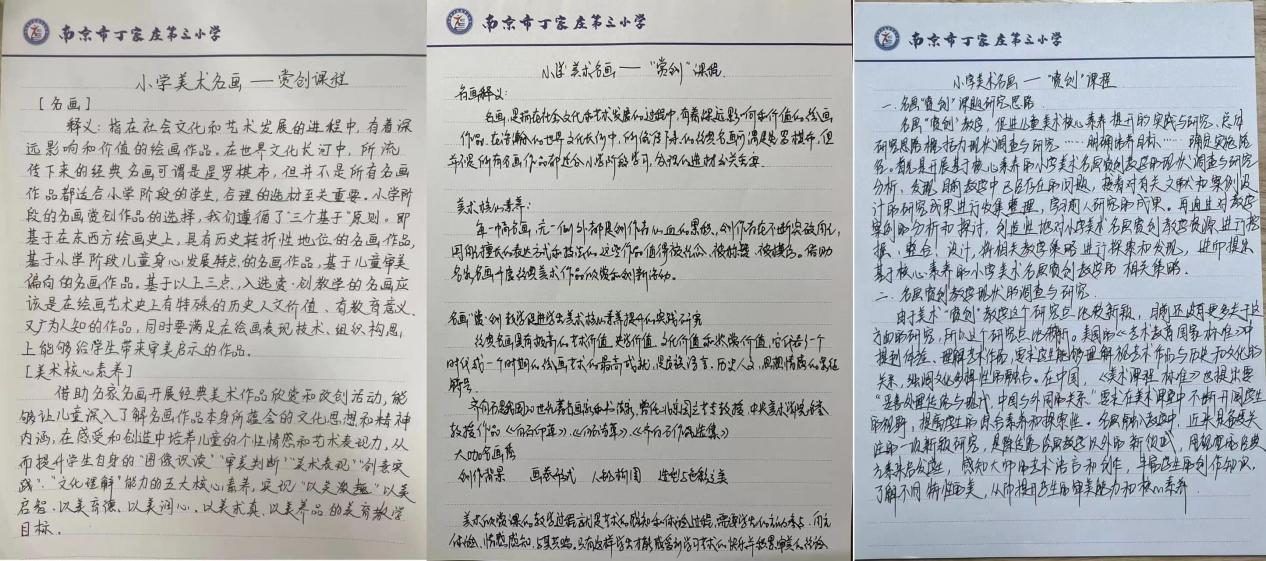 南京市丁家庄第三小学
小学美术名画——赏创课程
[名画]
释义：指在社会文化和艺术发展的进程中，有着深
远影响和价值的绘画作品。在世界文化长河中，所流
传下来的经典名画可谓是星罗棋布，但并不是所有名画
作品都适合小学阶段的学生，合理的选材至关重要。小学阶
段的名画赏创作品的选择，我们遵循了“三个基于”原则。即
基于在东西方绘画史上，具有历史转折性地位的名画作品，
基于小学阶段儿童身心发展特点的名画作品，基于儿童审美
偏向的名画作品。基于以上三点，入选赏·创教学的名画应
该是在绘画艺术史上有特殊的历史人文价值、有教育意义、
又广为人知的作品，同时要满足在绘画表现技术、组织构思，
上能够给学生带来审美启示的作品。
[美术核心素养]
借助名家名画开展经典美术作品欣赏和改创活动，能
够让儿童深入了解名画作品本身所蕴含的文化思想和精神
内涵，在感受和创造中培养儿童的个性情感和艺术表现力，从
而提升学生自身的“图像识读”“审美判断”“美术表现”“创意实
践”、“文化理解”能力的五大核心素养，实现“以美激趣”以美
启智、以美育德、以美润心、以美求真、以美养品的美育教学
目标。
南京市丁家庄第三小学
小学美术名画——“赏创”课程
名画释义：
名画，是指在社会文化和艺术发展的过程中，有着深远影响和价值的绘画
作品。在浩瀚的世界文化长河中，所流传下来的经典名画可谓是星罗棋布，但
并不是所有名画作品都适合小学阶段学习，合理的选材至关重要。
美术核心素养：
每一幅名画，无一例外都是创作者的血的累积，创作者在不断突破固化，
用所擅长的表达方式和技法的，这些作品值得被纪念、被封藏、被模仿。借助
名家名画开展经典美术作品欣赏和创新活动。
名画“赏·创”教学促进学生美术核心素养提升的实践研究
经典名画具有极高的艺术价值、史学价值、文化价值和欣赏价值，它代表了一个
时代或一个时期的绘画艺术的最高成就，是民族语言、历史人文、思想情感的象征
符号。
齐白石是我国20世纪著名画家和书法家，曾任北京国立艺专教授、中央美术学院名誉
教授作品《
大咖名画鹰
创作背景 画卷形式 人物构图 造型与色彩之美
美术欣赏课的教学过程就是艺术的感知和体验过程，需要学生的主动参与、用心
体验、情感感知、与其共鸣。只有这样学生才能感受到学习艺术的快乐并积累审美的经验
南京市丁家庄第三小学
小学美术名画——“赏创”课程
一、名画“赏创”课题研究思路
名画“赏创”教学，促进儿童美术核心素养提升的实践与研究、总体
研究思路概括为现状调查与研究……明确培养目标……确定实施路
径。首先是开展基于核心素养的小学美术名画赏创教学的现状调查与研究
分析，发现目前教学中已经存在的问题，接着对有关文献和案例设
计的研究成果进行收集整理，学习前人研究的成果。再通过对教学
案例的分析和探讨，创造性地对小学美术名画赏创教学资源进行挖
掘、整合、设计，将相关教学策略进行探索和发现，进而提出
基于核心素养的小学美术名画赏创教学的相关策略。
二、名画赏创教学现状的调查与研究
由于美术“赏创”教学这个研究点比较新颖，目前还没有更多关于这
方面的研究，所以这个研究点比较新。美国的《艺术教育国家标准》中
提到体验、理解艺术作品，要求学生能够理解视觉艺术作品与历史和文化的
关系，强调文化多样性的融合。在中国，《美术课程标准》也提出要
“妥善处理传统与现代、中国与外国的关系”要求在美术课中不断开阔学生
的视野，提高学生的综合素养和探索性。名画融入教学中，近来具有相关
性的一项新颖研究，是跨越传统教学以外的新模式，用视觉的经典
元素来启发学生，感知大师的艺术语言和创作，丰富学生的创作知识，
了解不同特性的美，从而提升学生的审美能力和核心素养。